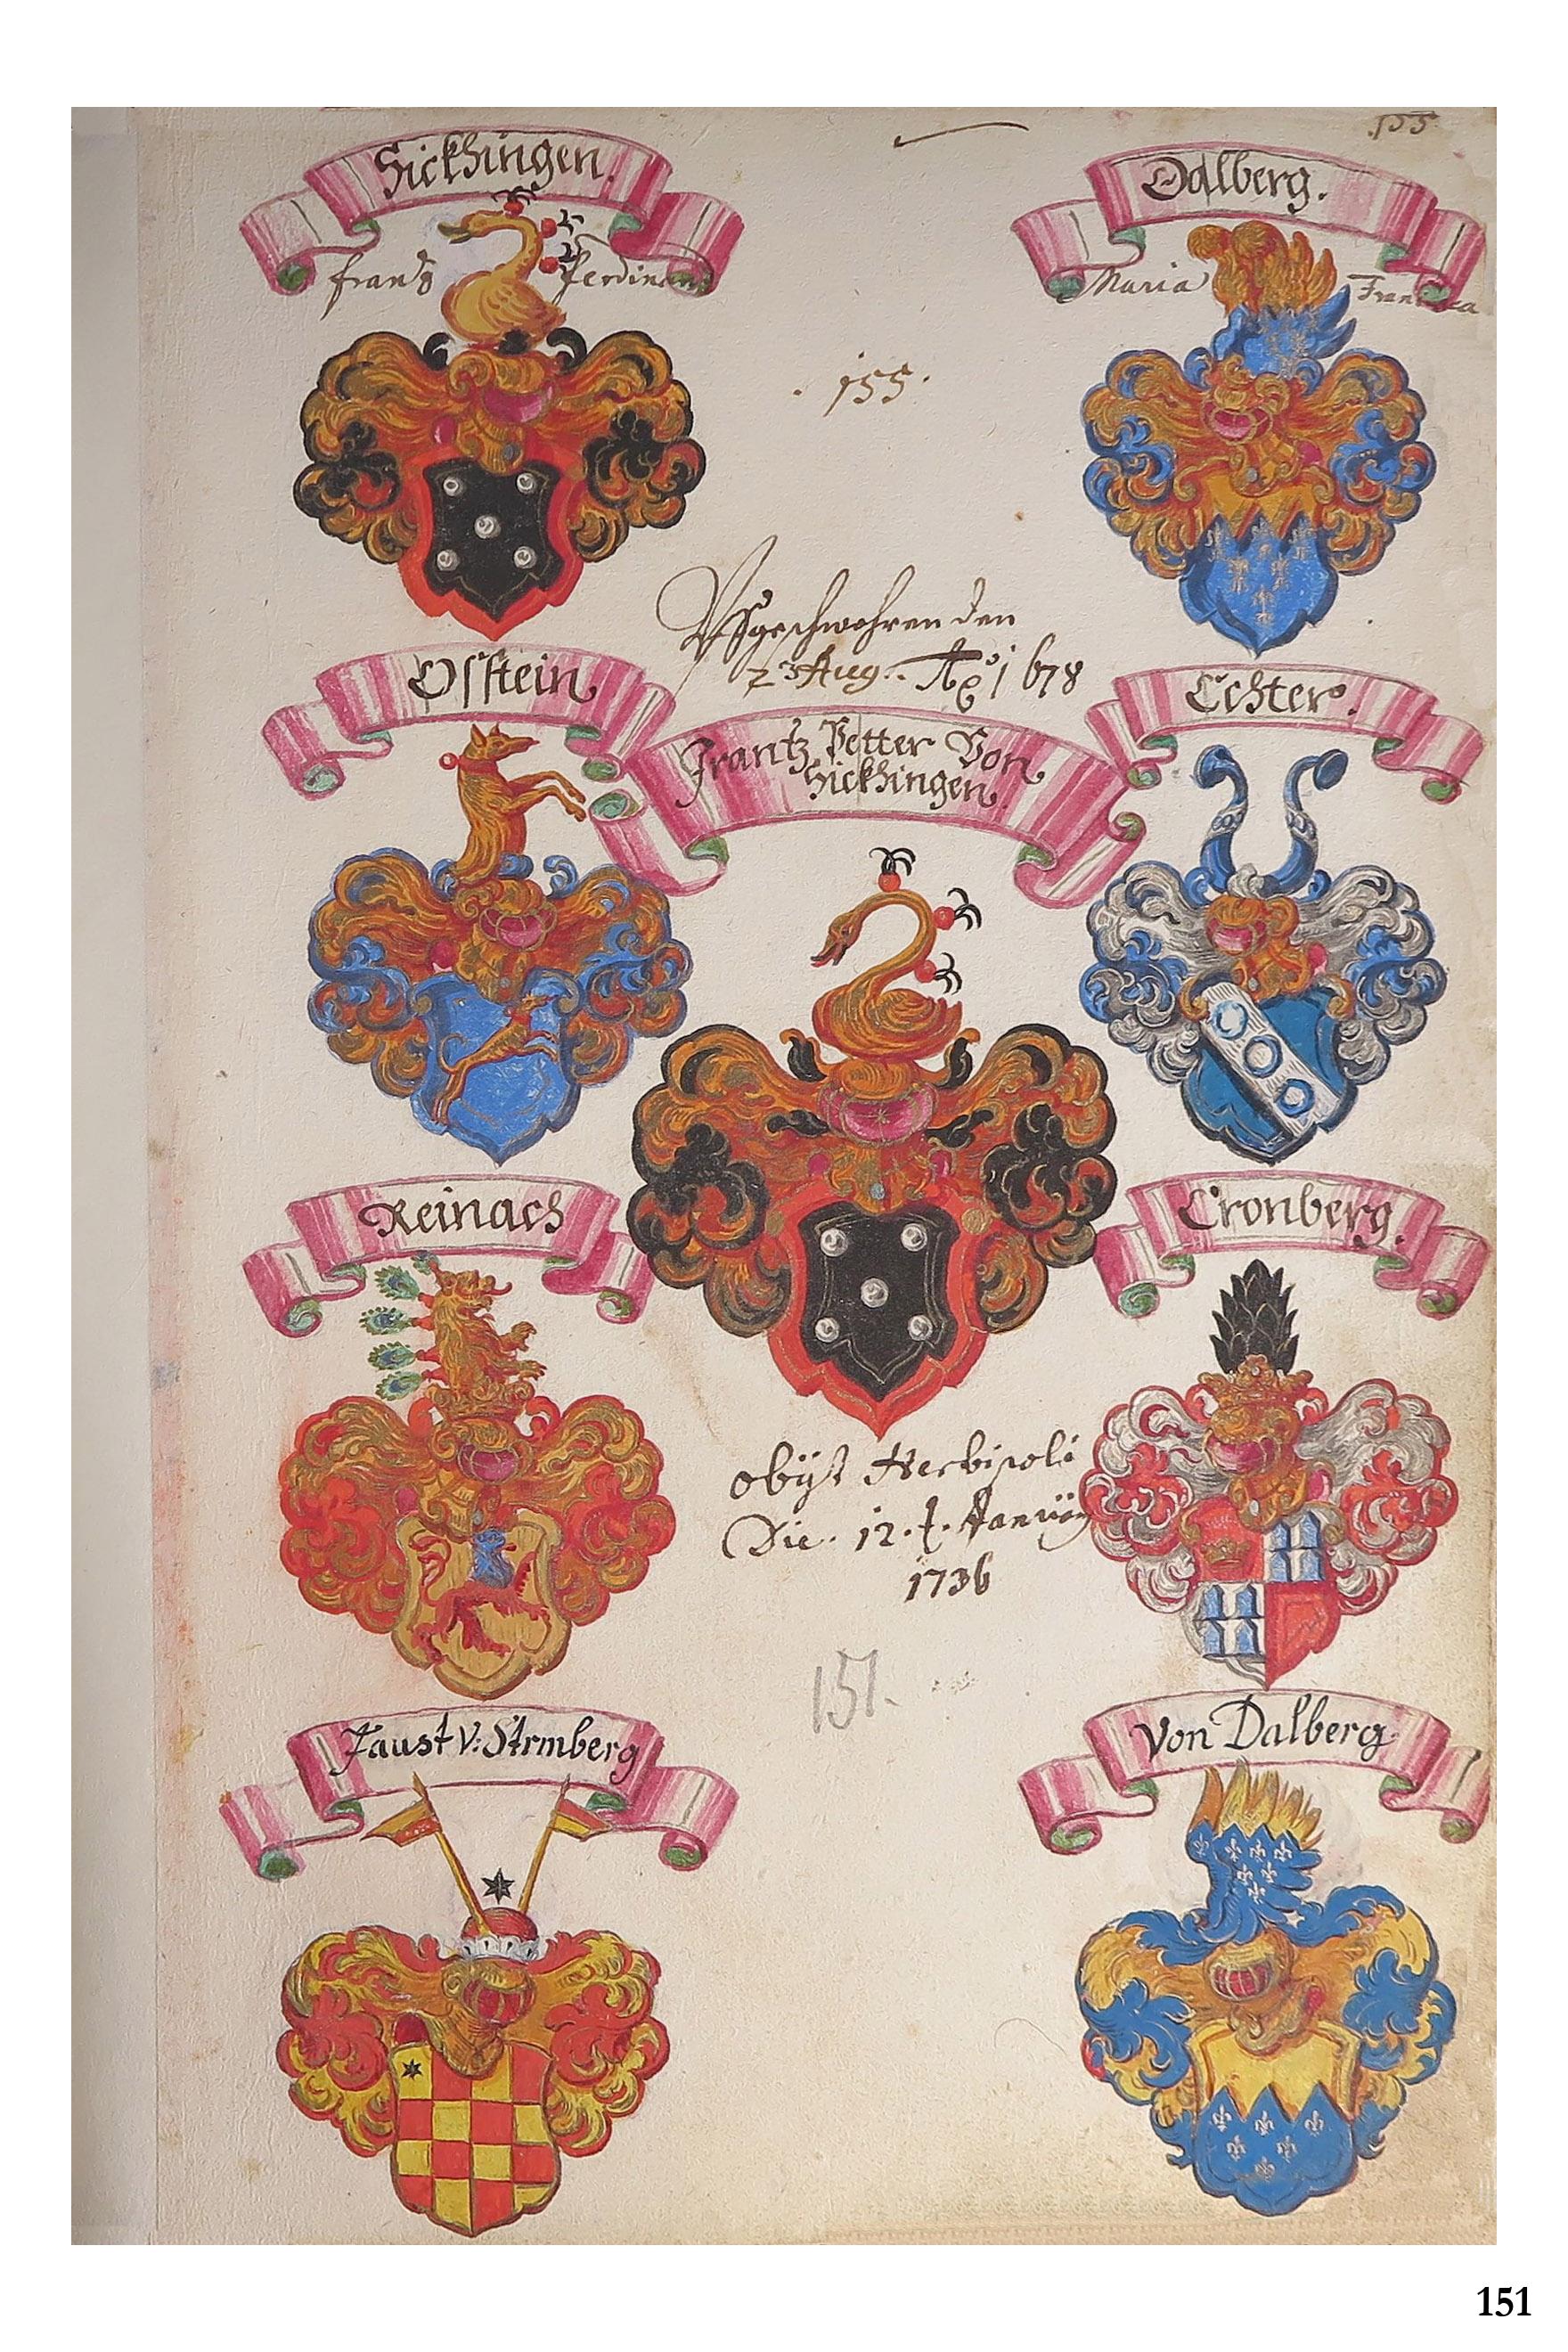 155
Sickhingen.
Dalberg.
frantz ferdinand
Maria Francisca
. 155 .
Uffgeschwohren den
23 Aug. Aō 1678
Osstein
Echter.
Frantz Petter Von
Sickhingen.
Reinach
Cronberg.
obÿt Herbipoli
Die. 12. t. Januÿ
1736
151.
Faust v: Strmberg
Von Dalberg
151